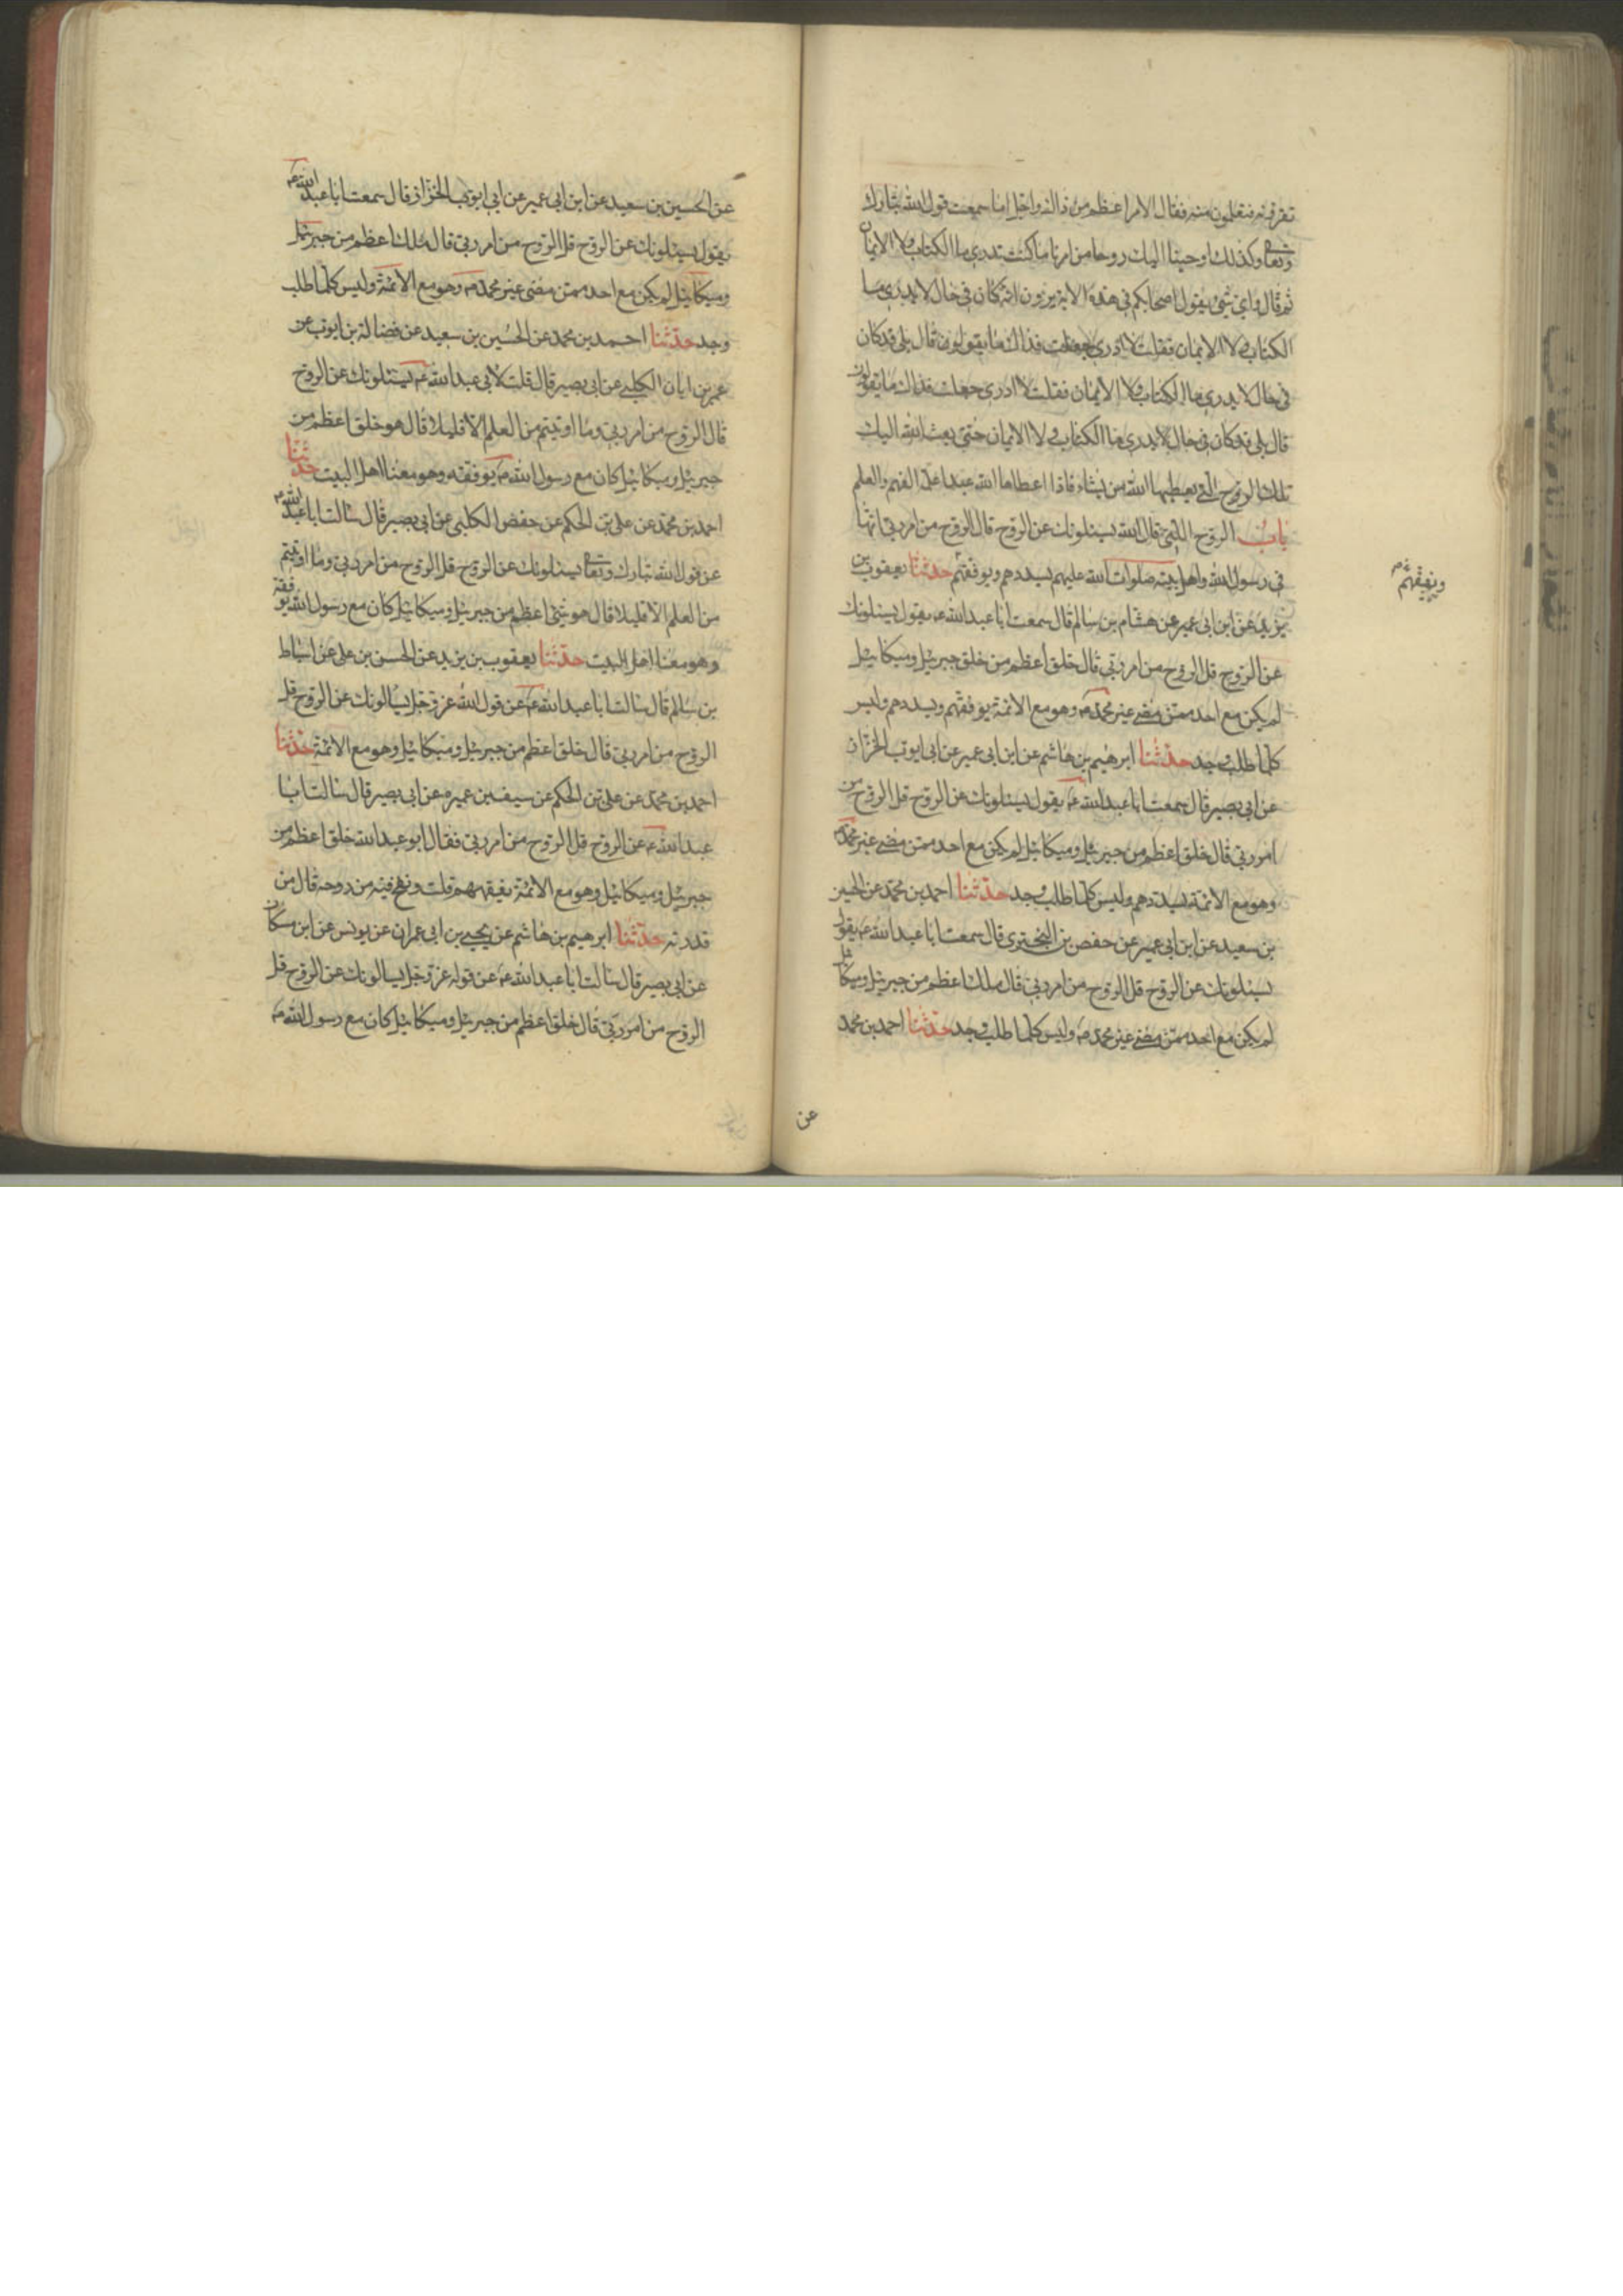 تقرؤنه فتعلمون منه فقال الامر اعظم من ذالك واجل اما سمعت قول الله تبارك
وتعا وكذلك اوحينا اليك روحا من امرنا ما كنت تدرى ما الكتاب ولا الايمان
ثم قال واى شئ يقول اصحابكم فى هذه الاية يرون انه كان فى حال لا يدرى ما
الكتاب ولا الايمان فقلت لا ادرى جعلت فداك ما يقولون قال بلى قد كان
فى حال لا يدرى ما الكتاب ولا الايمان فقلت لا ادرى جعلت فداك ما يقولون
قال بلى قد كان فى حال لا يدرى ما الكتاب ولا الايمان حتى بعث الله اليك
تلك الروح التى يعطيها الله من يشاء فاذا اعطاها الله عبدا علم الفهم والعلم
باب الروح التى قال الله يسئلونك عن الروح قال الروح من امر ربى انها
فى رسول الله واهل بيته صلوات الله عليهم يسددهم ويوفقهم حدثنا يعقوب بن
ويفقههم
يزيد عن ابن ابى عمير عن هشام بن سالم قال سمعت ابا عبد الله ع يقول يسئلونك
عن الروح قل الروح من امر ربى قال خلق اعظم من خلق جبرئيل وميكائيل
لم يكن مع احد ممن مضى غير محمد ص وهو مع الائمة يوفقهم ويسددهم وليس
كلما طلب وجد حدثنا ابرهيم بن هاشم عن ابن ابى عمير عن ابى ايوب الخزان
عن ابى بصير قال سمعت ابا عبد الله ع يقول يسئلونك عن الروح قل الروح من
امر ربى قال خلق اعظم من جبرئيل وميكائيل لم يكن مع احد ممن مضى غير محمد ص
وهو مع الائمة يسددهم وليس كلما طلب وجد حدثنا احمد بن محمد عن الحسين
بن سعيد عن ابن ابى عمير عن حفص بن البخترى قال سمعت ابا عبد الله ع يقول
يسئلونك عن الروح قل الروح من امر ربى قال ملك اعظم من جبرئيل وميكائيل
لم يكن مع احد ممن مضى غير محمد ص وليس كلما طلب وجد حدثنا احمد بن محمد
عن
عن الحسين بن سعيد عن ابن ابى عمير عن ابى ايوب الخزاز قال سمعت ابا عبد الله ع
يقول يسئلونك عن الروح قل الروح من امر ربى قال ملك اعظم من جبرئيل
وميكائيل لم يكن مع احد ممن مضى غير محمد ص وهو مع الائمة وليس كلما طلب
وجد حدثنا احمد بن محمد عن الحسين بن سعيد عن فضالة بن ايوب عن
عمر بن ابان الكلبى عن ابى بصير قال قلت لابى عبد الله ع يسئلونك عن الروح
قال الروح من امر ربى وما اوتيتم من العلم الا قليلا قال هو خلق اعظم من
جبرئيل وميكائيل كان مع رسول الله ص يوفقه وهو معنا اهل البيت حدثنا
احمد بن محمد عن على بن الحكم عن حفص الكلبى عن ابى بصير قال سالت ابا عبد الله ع
عن قول الله تبارك وتعا يسئلونك عن الروح قل الروح من امر ربى وما اوتيتم
من العلم الا قليلا قال هو شئ اعظم من جبرئيل وميكائيل كان مع رسول الله يوفقه
وهو معنا اهل البيت حدثنا يعقوب بن يزيد عن الحسن بن على عن اسباط
بن سالم قال سالت ابا عبد الله ع عن قول الله عز وجل يسالونك عن الروح قل
الروح من امر ربى قال خلق اعظم من جبرئيل وميكائيل وهو مع الائمة حدثنا
احمد بن محمد عن على بن الحكم عن سيف بن عميرة عن ابى بصير قال سالت ابا
عبد الله ع عن الروح قل الروح من امر ربى فقال ابو عبد الله خلق اعظم من
جبرئيل وميكائيل وهو مع الائمة يفقههم قلت ونفخ فيه من روحه قال من
قدرته حدثنا ابرهيم بن هاشم عن يحيى بن ابى عمران عن يونس عن ابن مسكان
عن ابى بصير قال سالت ابا عبد الله ع عن قوله عز وجل يسالونك عن الروح قل
الروح من امر ربى قال خلق اعظم من جبرئيل وميكائيل كان مع رسول الله ص